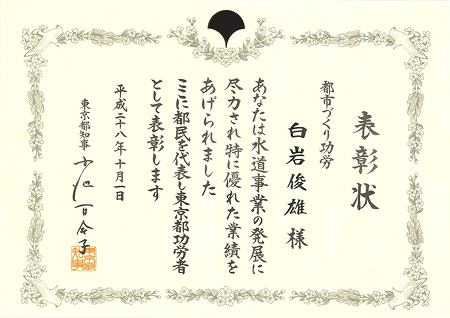 表彰状
都市づくり功労
白岩俊雄 様
あなたは水道事業の発展に
尽力され特に優れた業績を
あげられました
ここに都民を代表し東京都功労者
として表彰します
平成二十八年十月一日
東京都知事 小池百合子